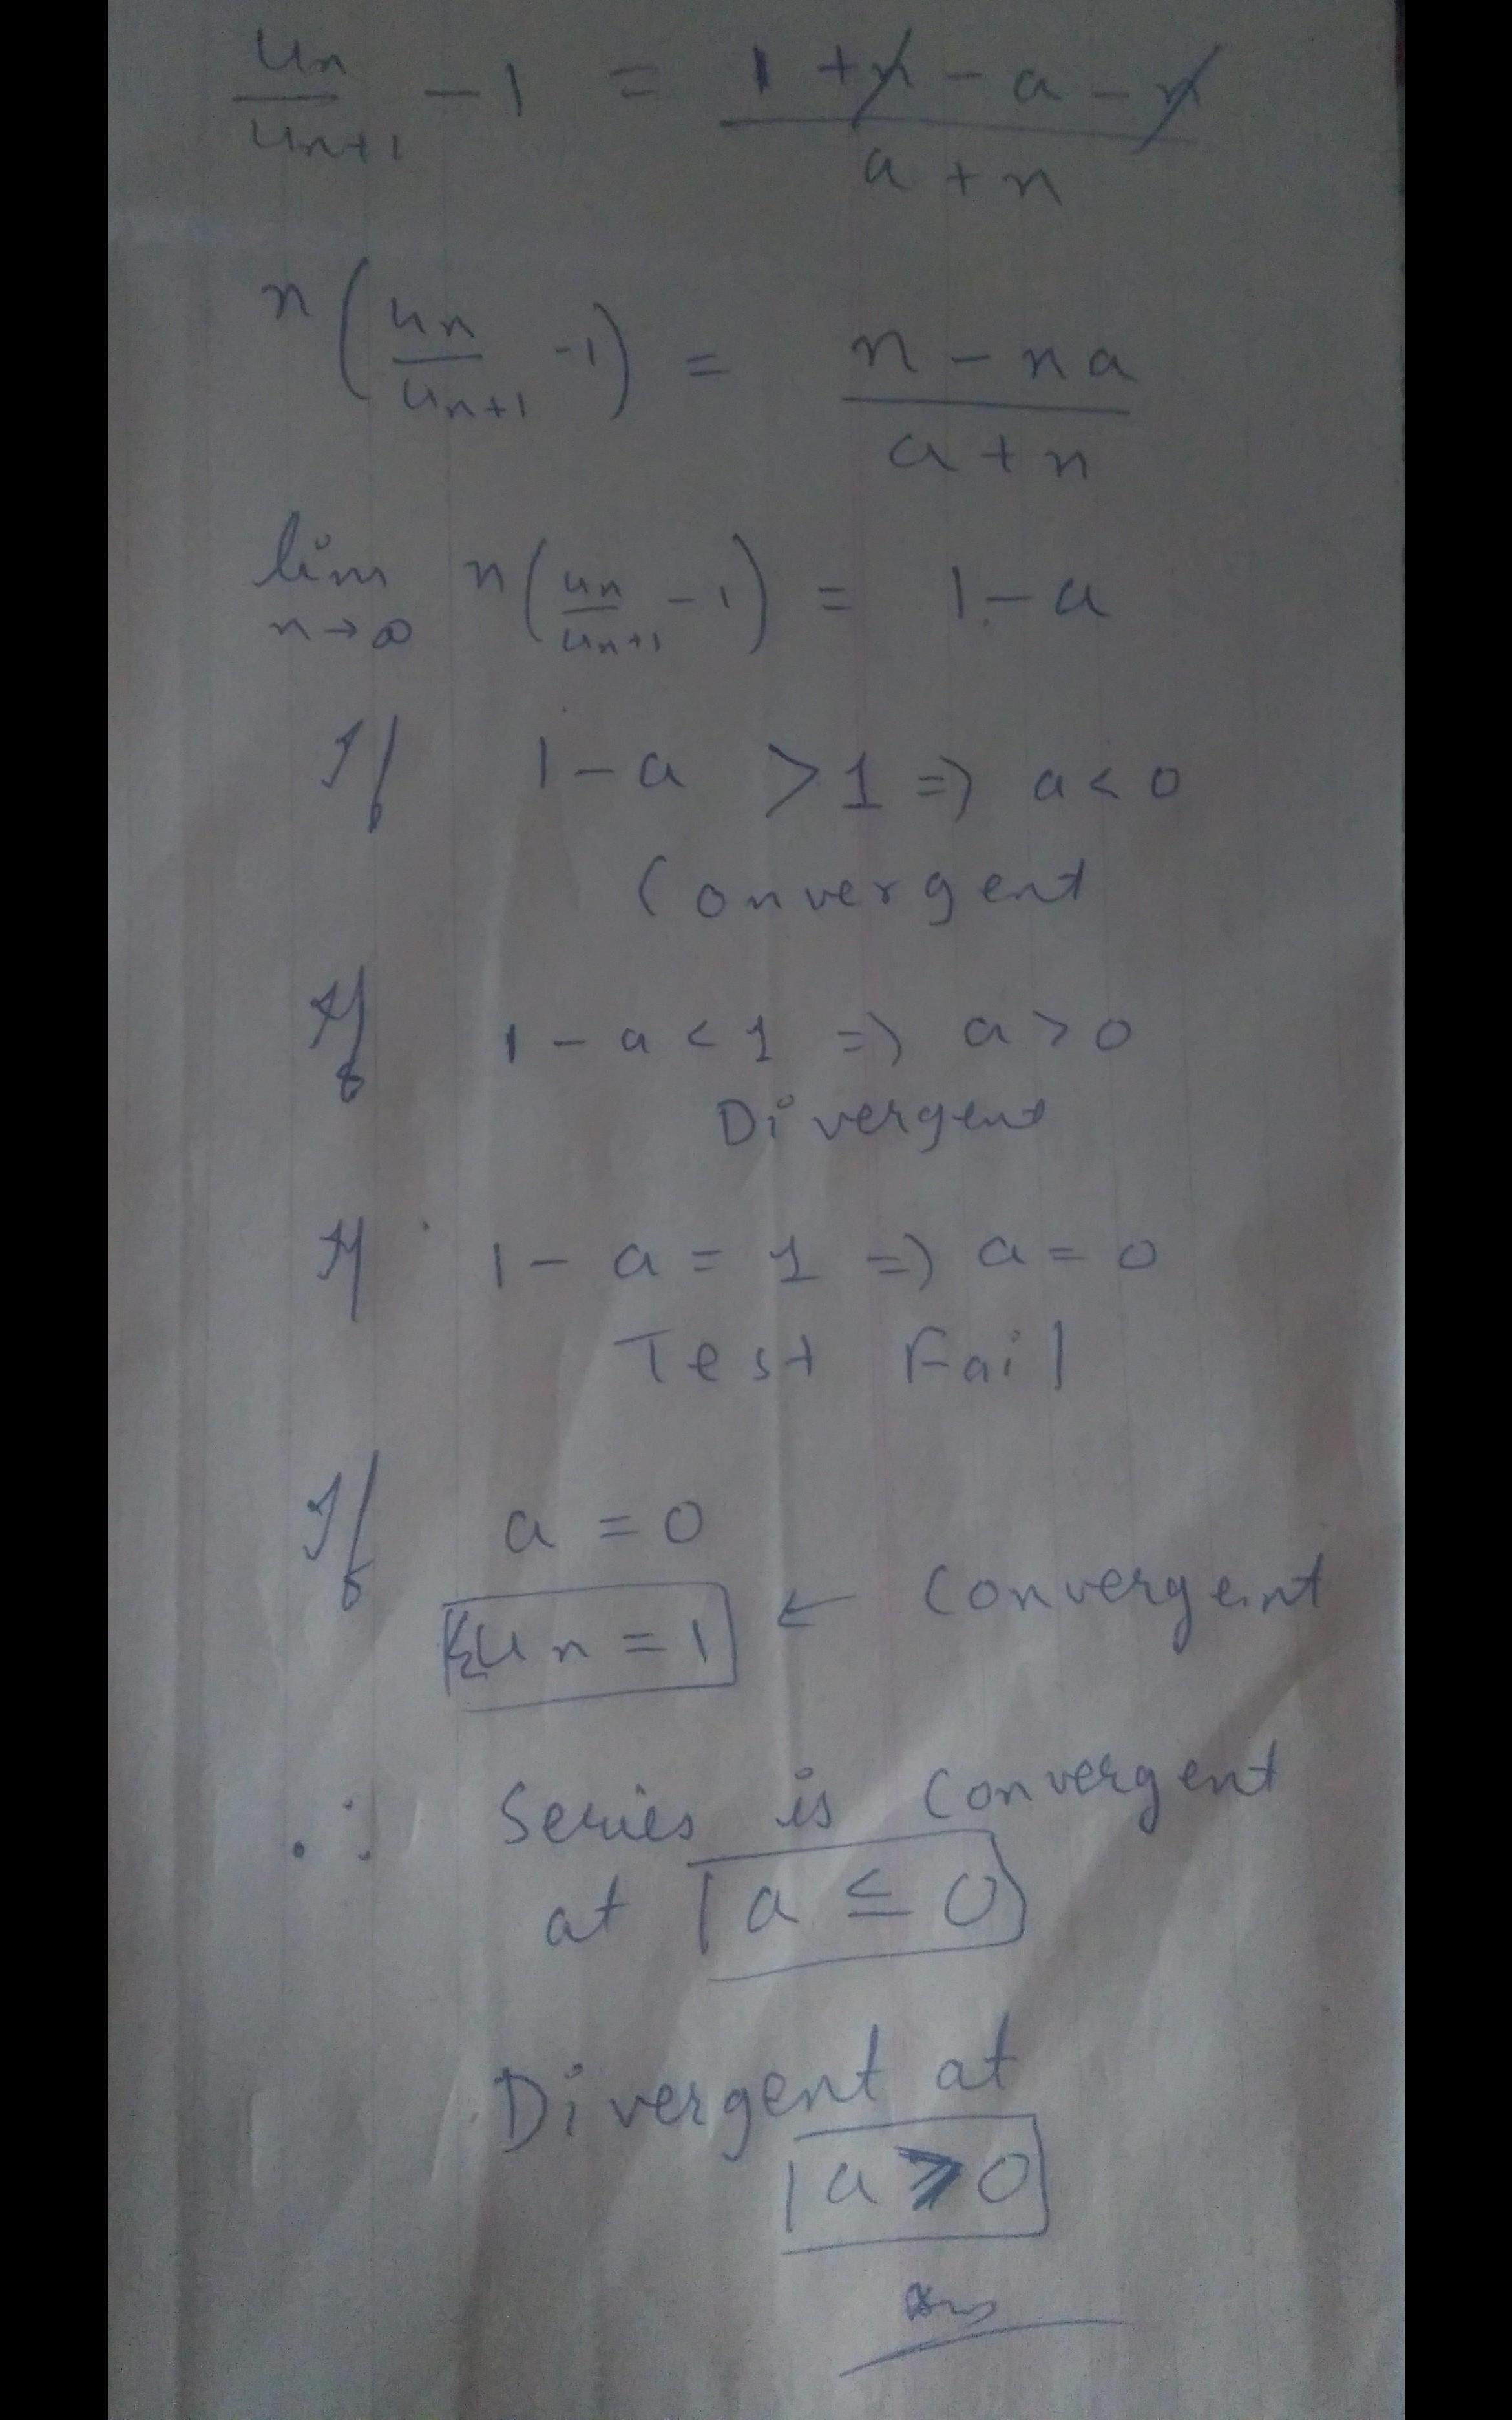 un/un+1 - 1 = 1 + n - a - n / a + n
n ( un/un+1 - 1 ) = n - na / a + n
lim n→∞ n ( un/un+1 - 1 ) = 1 - a
If 1 - a > 1 ⇒ a < 0
Convergent
If 1 - a < 1 ⇒ a > 0
Divergent
If 1 - a = 1 ⇒ a = 0
Test Fail
If a = 0
Σun = 1 ← Convergent
∴ Series is Convergent
at a ≤ 0
Divergent at
a > 0
Ans